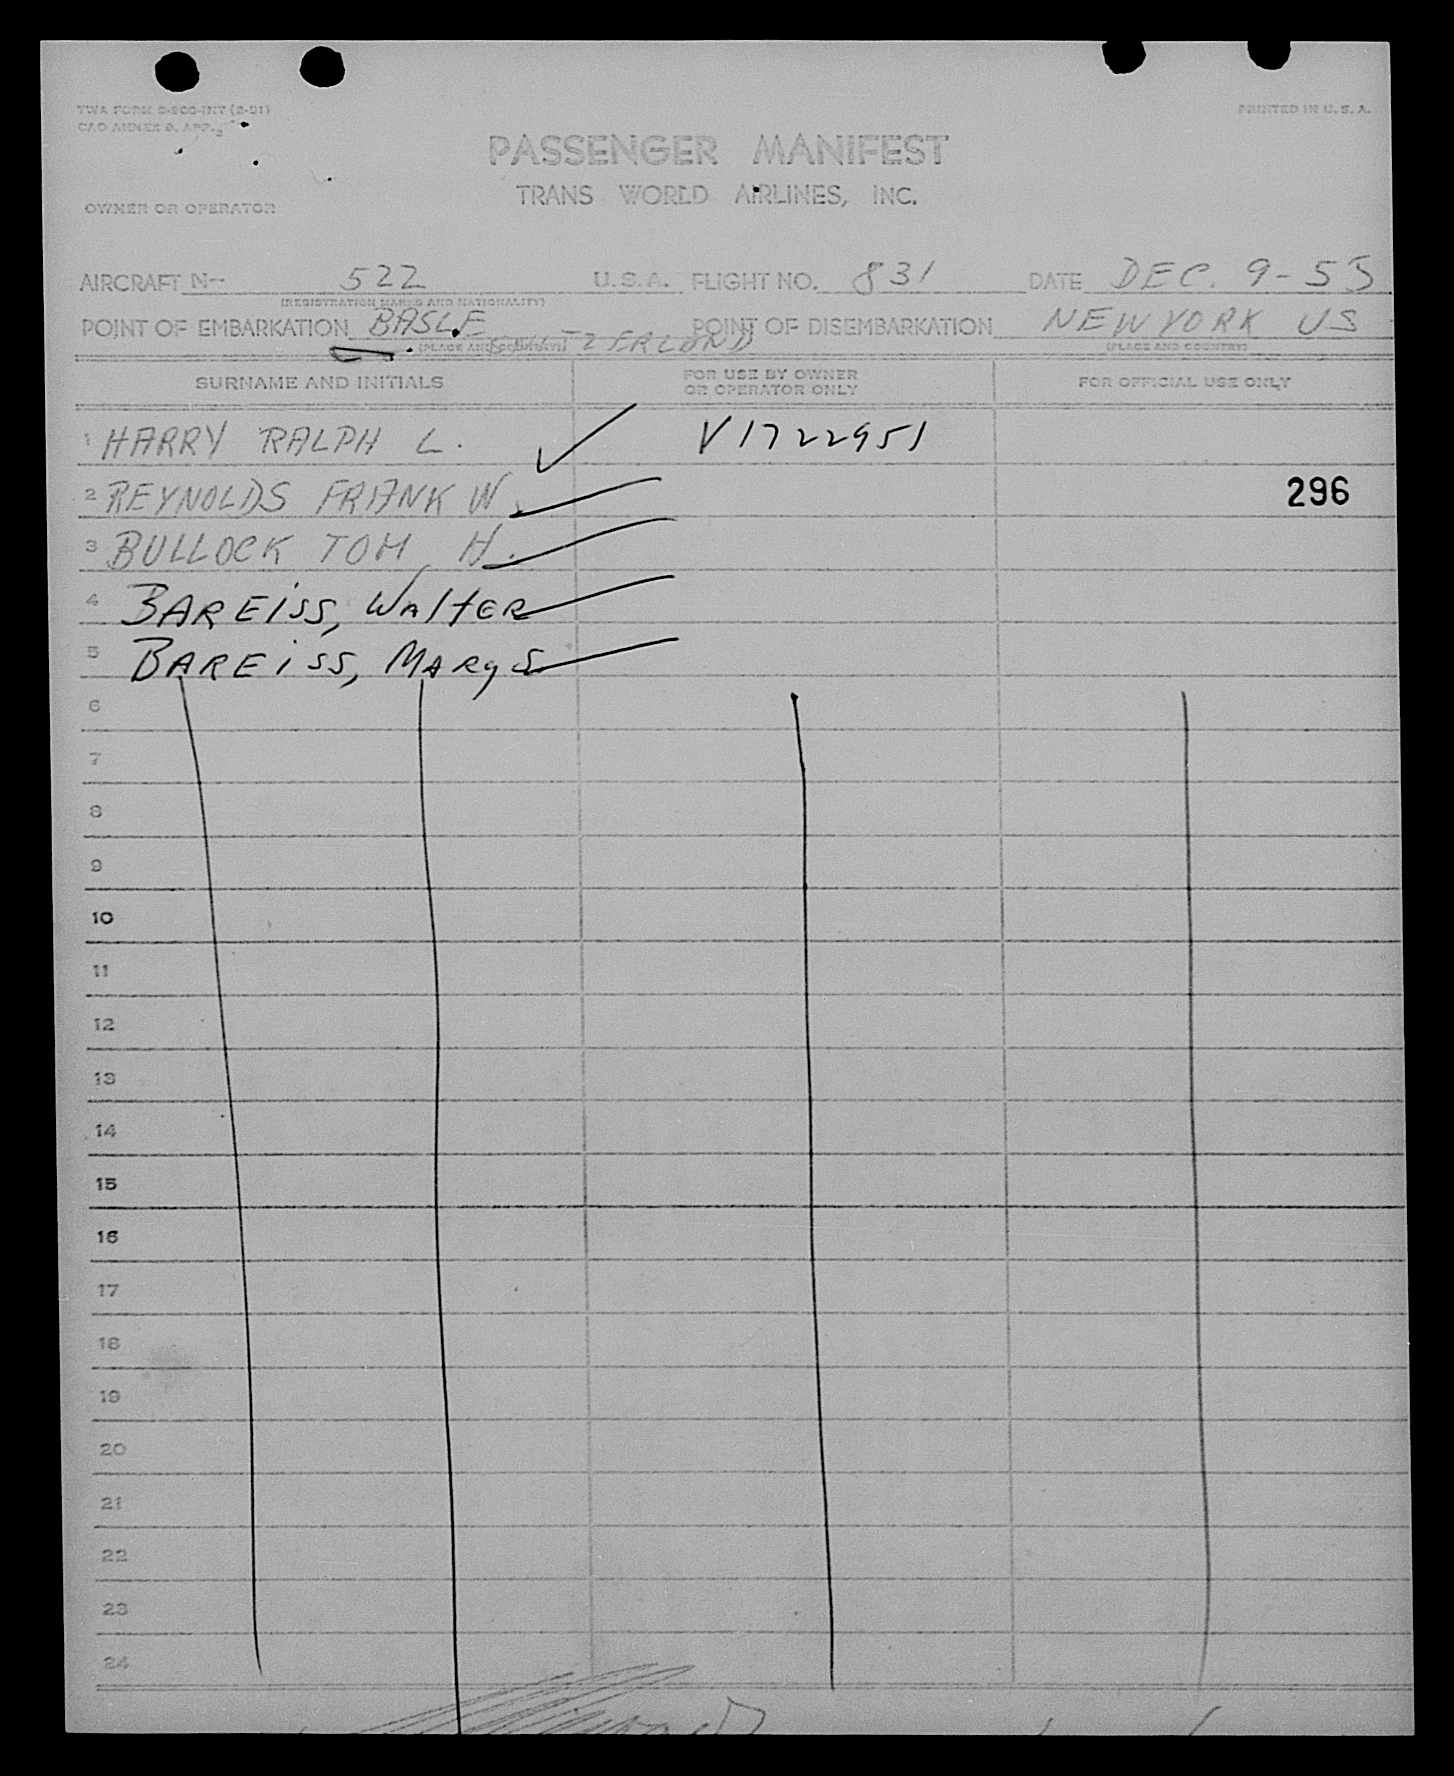 TWA FORM
PRINTED IN U. S. A.
PASSENGER MANIFEST
TRANS WORLD AIRLINES, INC.
OWNER OR OPERATOR
AIRCRAFT N-- 522 U. S. A. FLIGHT NO. 831 DATE DEC. 9-55
(REGISTRATION MARKS AND NATIONALITY)
POINT OF EMBARKATION BASLE POINT OF DISEMBARKATION NEW YORK US
(PLACE AND COUNTRY)
SURNAME AND INITIALS FOR USE BY OWNER OR OPERATOR ONLY FOR OFFICIAL USE ONLY
1 HARRY RALPH L. V1722951
2 REYNOLDS FRANK W. 296
3 BULLOCK TOM H.
4 BAREISS, WAlTER
5 BAREISS, MARy S
6
7
8
9
10
11
12
13
14
15
16
17
18
19
20
21
22
23
24